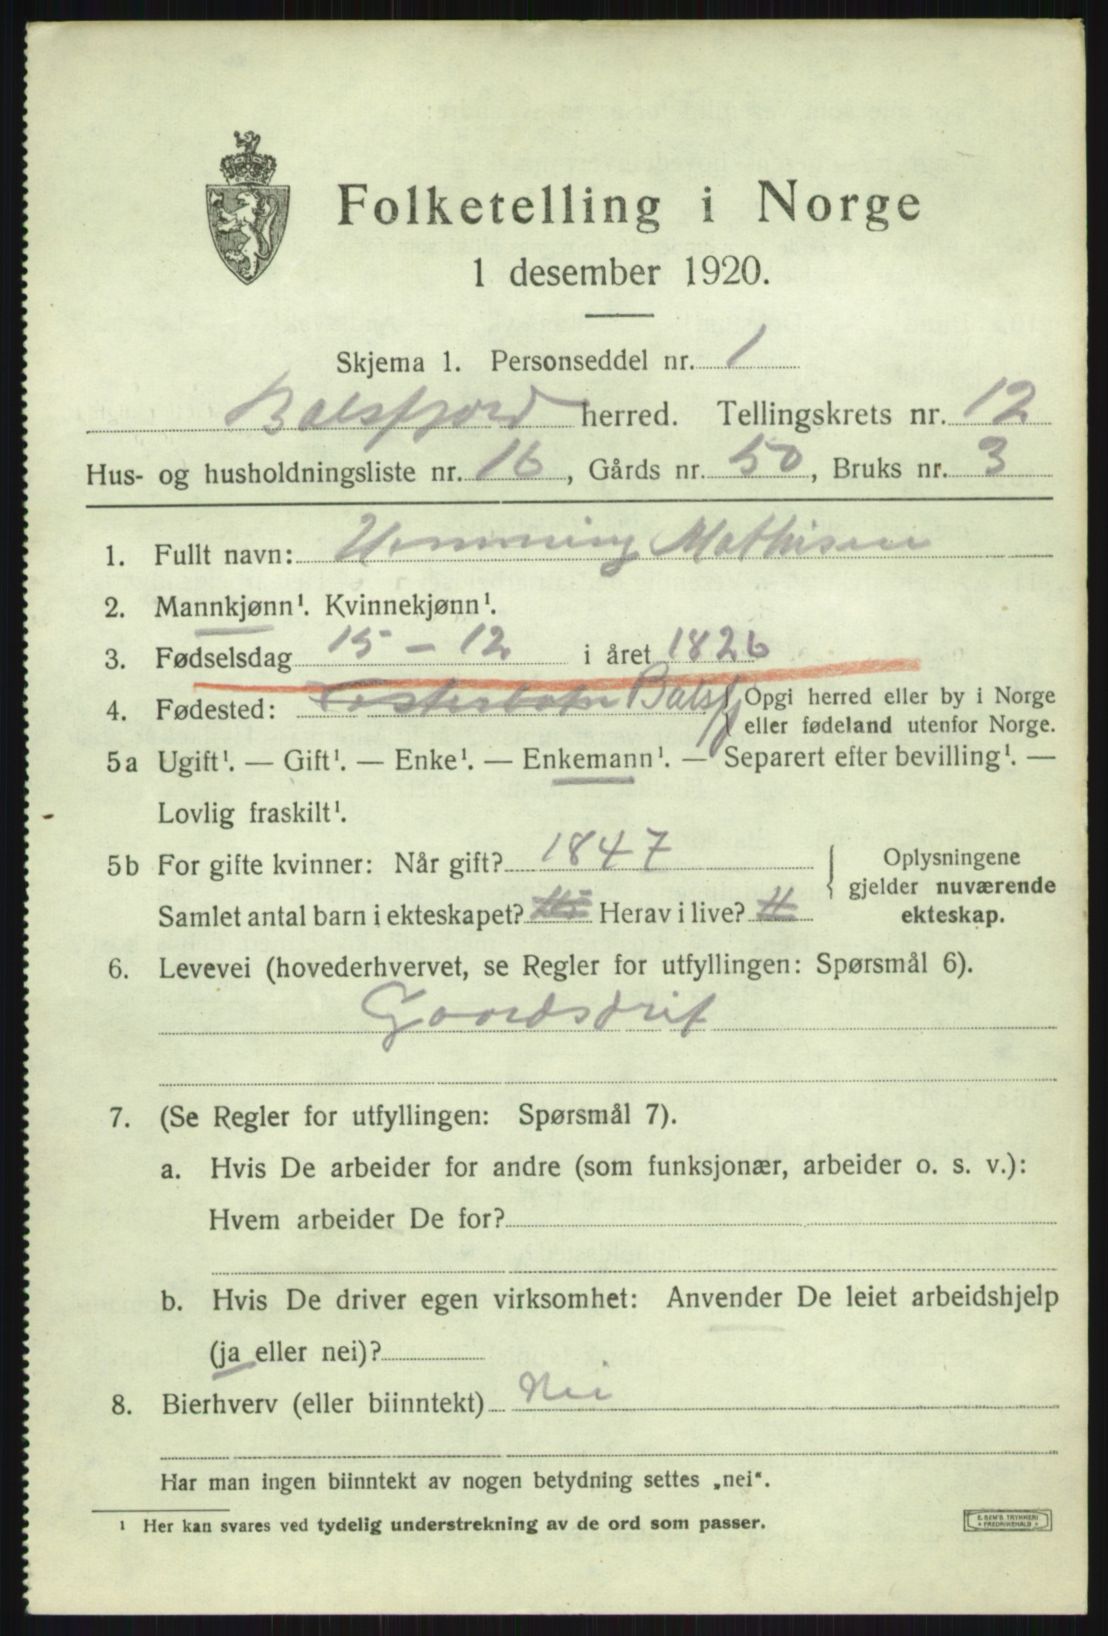 Folketelling i Norge
1 desember 1920.
Skjema 1. Personseddel nr. 1
Balsfjord herred. Tellingskrets nr. 12
Hus- og husholdningsliste nr. 16, Gårds nr. 50, Bruks nr. 3
1. Fullt navn: Hemming Mathisen
2. Mannkjønn¹. Kvinnekjønn¹.
3. Fødselsdag 15 - 12 i året 1826
4. Fødested: Balsfj Opgi herred eller by i Norge
eller fødeland utenfor Norge.
5a Ugift¹. — Gift¹. — Enke¹. — Enkemann¹. — Separert efter bevilling¹. —
Lovlig fraskilt¹.
5b For gifte kvinner: Når gift? 1847
Samlet antal barn i ekteskapet? Herav i live?
Oplysningene
gjelder nuværende
ekteskap.
6. Levevei (hovederhvervet, se Regler for utfyllingen: Spørsmål 6).
Gaardsdrif
7. (Se Regler for utfyllingen: Spørsmål 7).
a. Hvis De arbeider for andre (som funksjonær, arbeider o. s. v.):
Hvem arbeider De for?
b. Hvis De driver egen virksomhet: Anvender De leiet arbeidshjelp
(ja eller nei)?
8. Bierhverv (eller biinntekt) Nei
Har man ingen biinntekt av nogen betydning settes „nei“.
¹ Her kan svares ved tydelig understrekning av de ord som passer.
E. SEM'S TRYKKERI
FREDRIKSHALD